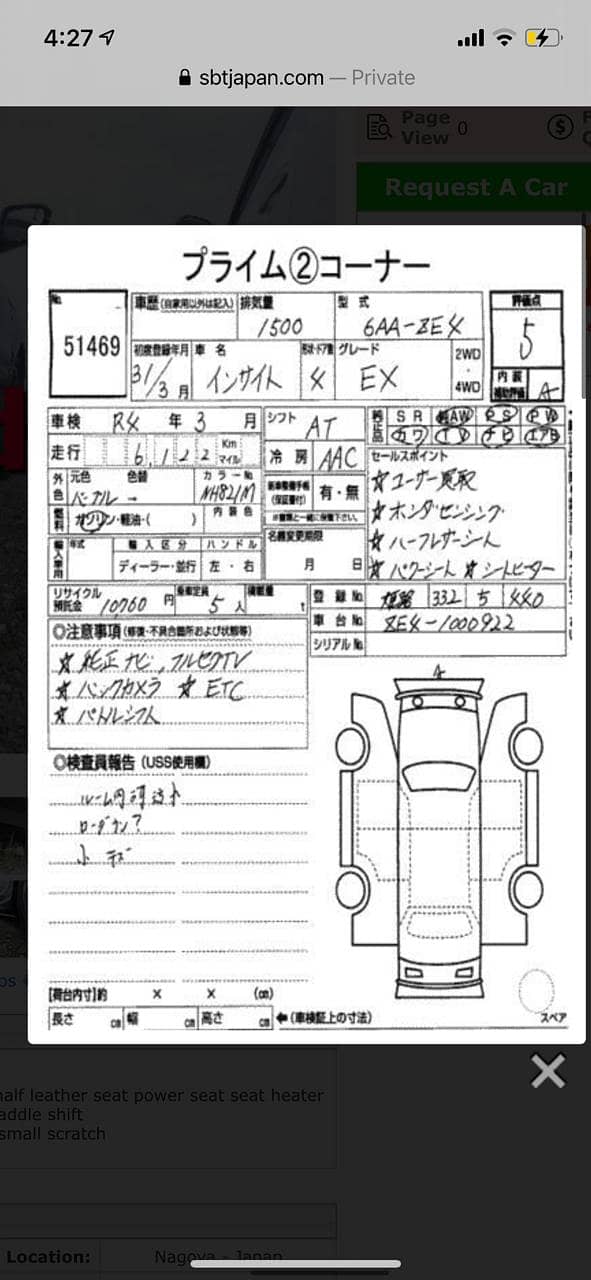 4:27
sbtjapan.com — Private
Page View 0
Request A Car
プライム②コーナー
No. 51469
車歴(自家用以外は記入)
排気量 1500
型式 6AA-ZE4
評価点 5
初度登録年月 31/3月
車名 インサイト
形状・ドア数 4
グレード EX
2WD・4WD
内装補助評価 A
車検 R4年3月
シフト AT
純正品 SR AW PS PW
カワ TV ナビ エアB
走行 6,122 Km マイル
冷房 AAC
セールスポイント
外色 元色 パープル 色替 → カラーNo. NH821M
有・無
☆ユーザー買取
☆ホンダセンシング
燃料 ガソリン・軽油・( ) 内装色
名義変更期限 月 日
☆ハーフレザーシート
輸入車用 年式 輸入区分 ハンドル
ディーラー・並行 左・右
☆パワーシート ☆シートヒーター
リサイクル預託金 10760円
乗車定員 5人
積載量 t
登録No. 姫路 332 5 440
車台No. ZE4-1000922
シリアルNo.
◎注意事項(修復・不具合箇所および状態等)
☆純正ナビ,フルセグTV
☆バックカメラ ☆ETC
☆パドルシフト
◎検査員報告(USS使用欄)
ローダウン?
小キズ
【荷台内寸】約 × × (cm)
長さ cm 幅 cm 高さ cm ←(車検証上の寸法)
スペア
half leather seat power seat seat heater
addle shift
small scratch
Location: Nagoya - Japan